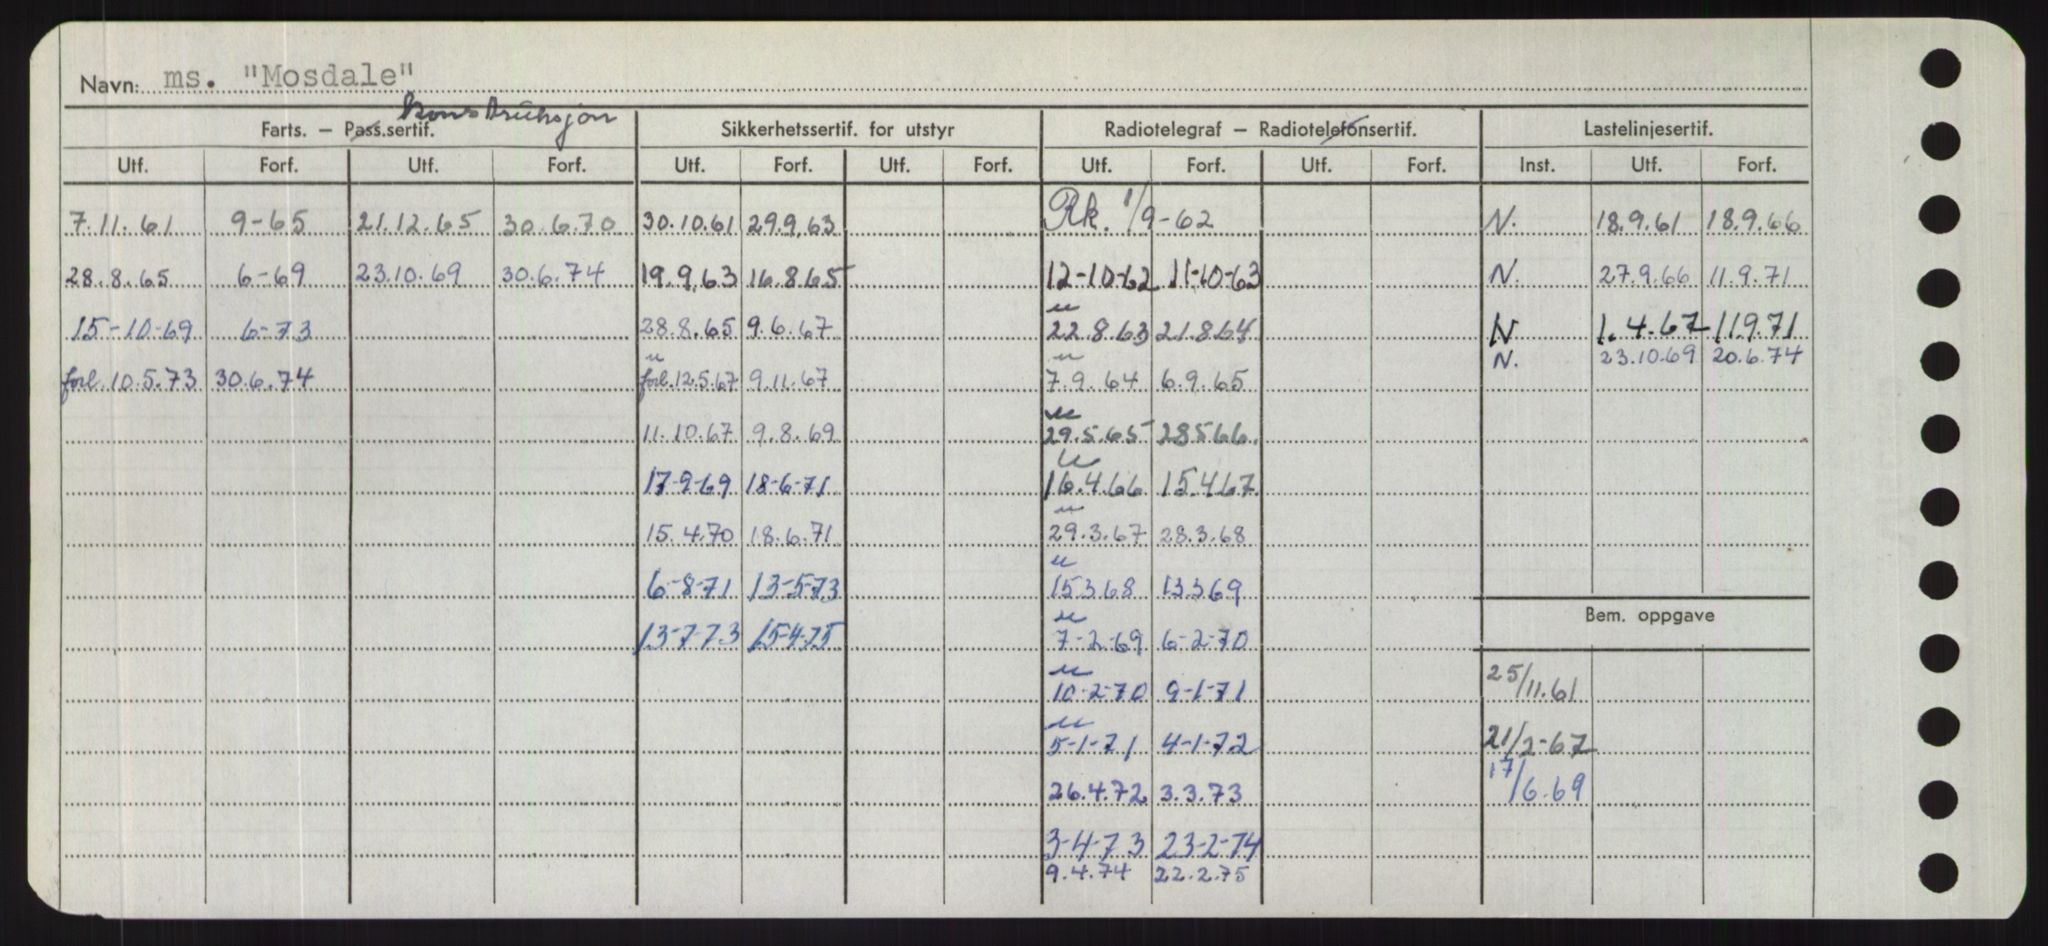 Navn: ms. "Mosdale"
konstruksjon
Farts. – Pass.sertif. Sikkerhetssertif. for utstyr Radiotelegraf – Radiotelefonsertif. Lastelinjesertif.
Utf. Forf. Utf. Forf. Utf. Forf. Utf. Forf. Utf. Forf. Utf. Forf. Inst. Utf. Forf.
7.11.61 9-65 21.12.65 30.6.70 30.10.61 29.9.63 Rk. 1/9-62 N. 18.9.61 18.9.66
28.8.65 6-69 23.10.69 30.6.74 19.9.63 16.8.65 12-10-62 11-10-63 N. 27.9.66 11.9.71
15-10-69 6-73 28.8.65 9.6.67 22.8.63 21.8.64 N 1.4.67 11.9.71
N. 23.10.69 20.6.74
forl. 10.5.73 30.6.74 forl. 12.5.67 9.11.67 7.9.64 6.9.65
11.10.67 9.8.69 29.5.65 28566.
17-9-69 18-6-71 16.4.66 15.4.67
15.4.70 18.6.71 29.3.67 28.3.68
6-8-71 13-5-73 15368 13369
Bem. oppgave
13-7-73 15-4-75 7-2-69 6-2-70
10-2-70 9-1-71 25/11.61
5-1-71 4-1-72 21/2-67
26.4.72 3.3.73 17/6.69
3-4-73 23-2-74
9.4.74 22.2.75